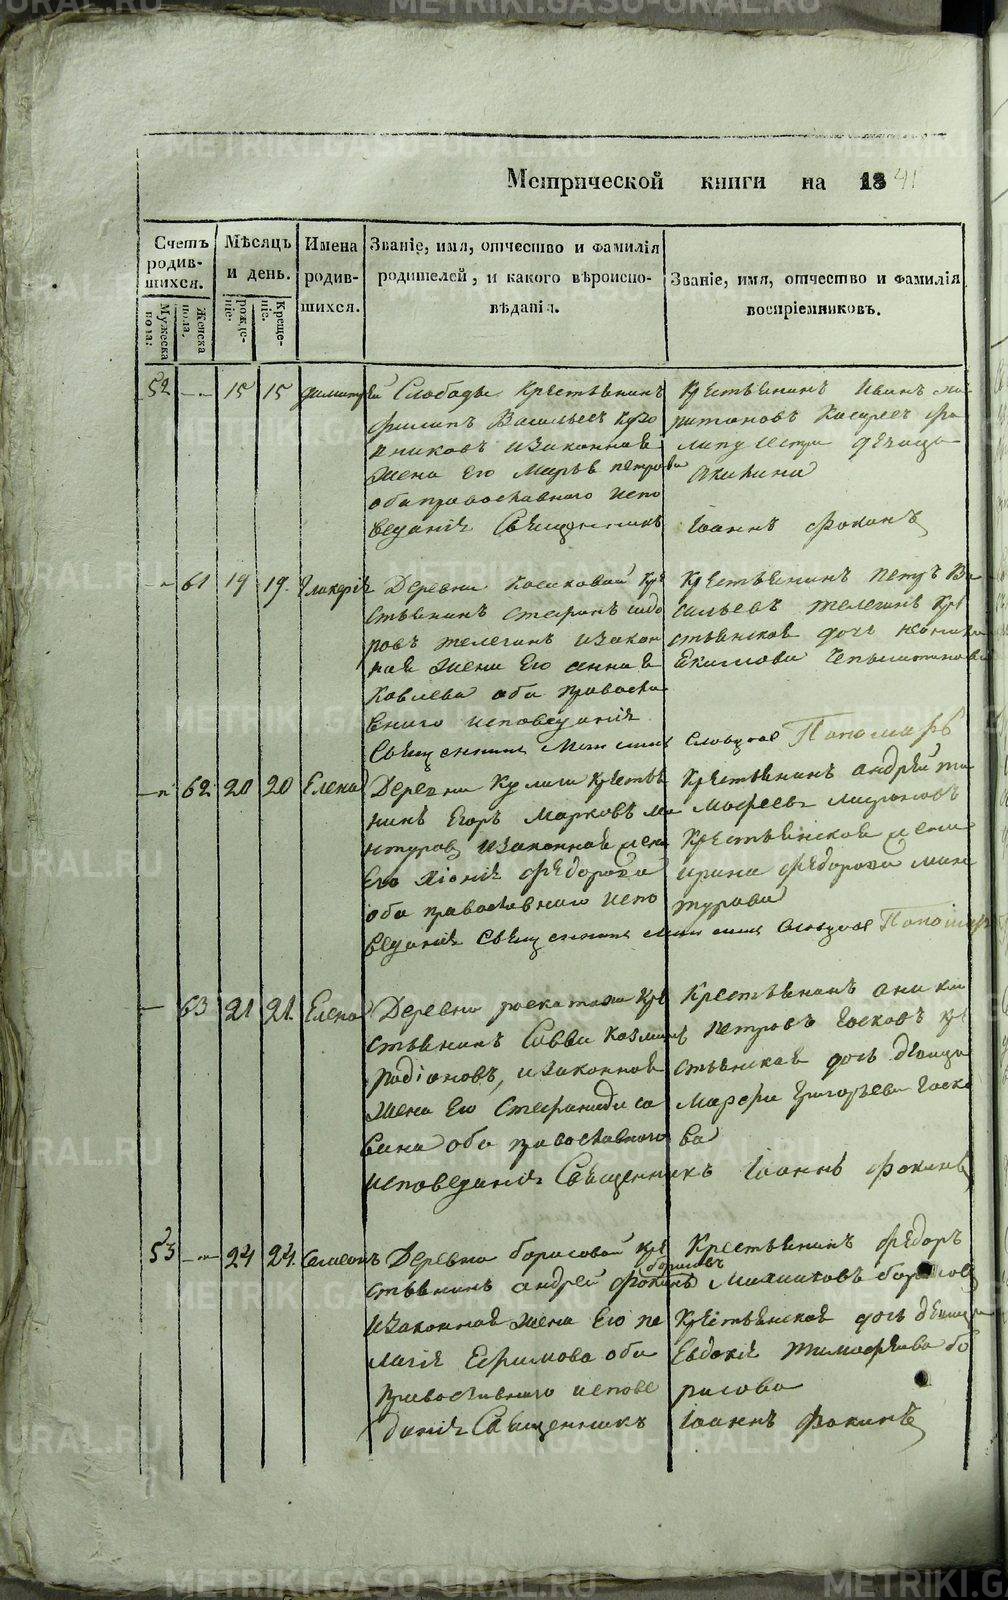 METRIKI.GASO-URAL.RU
Метрической книги на 1841
Счетъ родившихся.
Мужеска пола.
Женска пола.
Мѣсяцъ и день.
рожденіе.
Крещеніе.
Имена родившихся.
Званіе, имя, отчество и фамилія родителей, и какого вѣроисповѣданія.
Званіе, имя, отчество и фамилія воспріемниковъ.
52 — 15 15 Димитрій
Слободы Крестьянинъ
Филипъ Васильевъ
никовъ и законная
жена его Марья Петрова
оба православного испо
веданія Священникъ Іоаннъ Фокинъ
Крестьянинъ Иванъ
девица
Акилина
— 61 19 19 Гликерія
Деревни Косиковой кре
стьянинъ Стефанъ Сидо
ровъ Телегинъ и закон
ная жена его Анна Я
ковлева оба правосла
вного исповеданія
Священникъ Словцовъ Пономарь
Крестьянинъ Петръ Ва
сильевъ Телегинъ кре
стьянская дочь
Екимова
— 62 20 20 Елена
Деревни Кулиги крестья
нинъ Егоръ Марковъ Ма
нтуровъ и законная жена
его Хіонія Федорова
оба православного испо
веданія Священникъ Словцовъ Пономарь
Крестьянинъ Андрей Ти
мофеевъ
Крестьянская жена
Ирина Федорова Ман
турова
— 63 21 21 Елена
Деревни кре
стьянинъ Савва Козминъ
Родіоновъ, и законная
жена его Стефанида Са
вина оба православного
исповеданія Священникъ Іоаннъ Фокинъ
Крестьянинъ
Петровъ Гасковъ кре
стьянская дочь девица
Марфа Григорьева Гаско
ва
53 — 24 24 Симеонъ
Деревни Борисовой кре
стьянинъ Андрей Фокинъ Борисовъ
и законная жена его Пе
лагія Ефимова оба
православного испове
данія Священникъ Іоаннъ Фокинъ
Крестьянинъ Федоръ
Борисовъ
Крестьянская дочь девица
Евдокія Тимофеева Бо
рисова